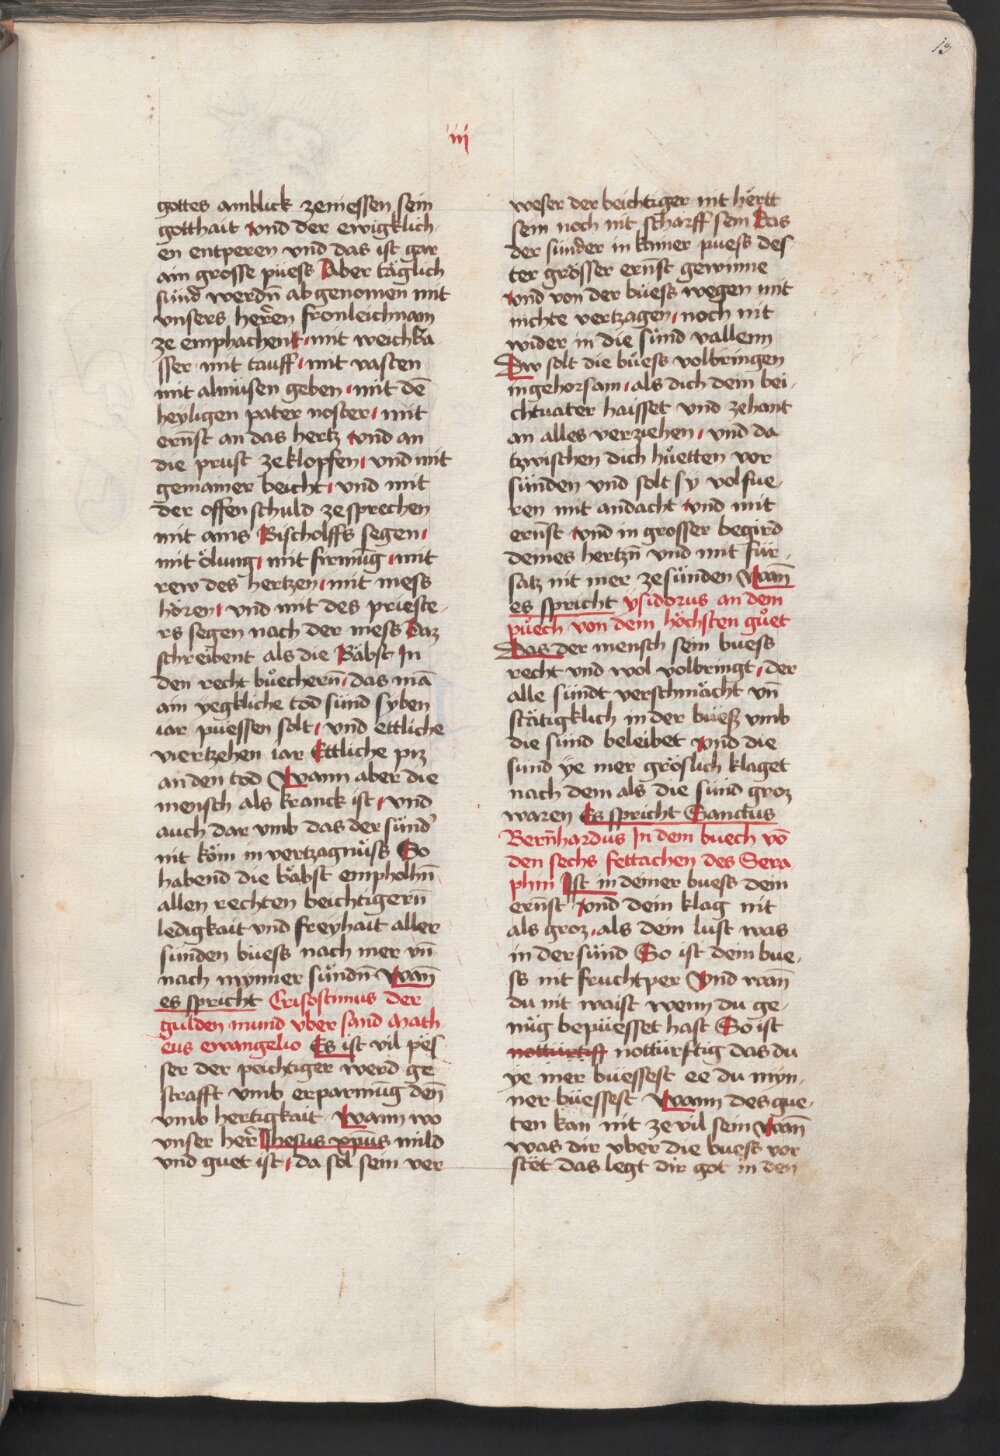 19
iij
gottes anblick zeniessen sein
gotthait vnd der ewigklich
en entperen vnd das ist gar
ain grosse puess Aber täglich
sünd werdn̄ abgenomen mit
vnsers herr̄en fronleichnam
ze emphachent mit weichwa
sser mit tauff mit vasten
mit almüsen geben mit dē
heyligen pater noster mit
ernst an das hertz vnd an
die prust zeklopfen vnd mit
gemainer beicht vnd mit
der offen schuld zesprechen
mit ains Bischolffs segen
mit ölung mit firmūg mit
rew des hertzen mit mess
hören vnd mit des prieste-
rs segen nach der mess Daz
schreibent als die Bäbst In
den recht bůechern̄ das mā
ain yegkliche tod sünd syben
iar püessen solt vnd ettliche
viertzehen iar Ettliche piz
an den tod Wann aber die
mensch als kranck ist vnd
auch dar vmb das der sünd'
nit köm in vertzagnüss So
habend die bäbst empholhn̄
allen rechten beichtigern̄
ledigkait vnd freyhait aller
sünden büess nach mer vn̄
nach mynner sündn̄ Wan̄
es spricht Crisostimus der
gulden mund vber sand Math
eus ewangelio Es ist vil pes
ser der peichtiger werd ge
strafft vmb erparmūg den̄
vmb hertigkait Wann wo
vnser her̄ Jhesus xpūs mild
vnd guet ist da sol sein ver
weser der beichtiger nit hertt
sein noch nit scharff sein Das
der sünder in kainer puess des
ter grösser ernst gewinne
vnd von der büess wegen mit
nichte vertzagen noch nit
wider in die sünd vallenn
Dw solt die büess volbringen
in gehorsam als dich dein bei-
chtuater haisset vnd zehant
an alles verziehen vnd da
tzwischen dich hüetten vor
sünden vnd solt sy volfue-
ren mit andacht vnd mit
ernst vnd in grosser begird
deines hertzn̄ vnd mit für-
satz nit mer zesünden Wan̄
es spricht ysidorus an dem
půech von dem höchsten gůet
Das der mensch sein buess
recht vnd wol volbringt der
alle sündt verschmächt vn̄
stätigklich in der büess vmb
die sünd beleibet vnd die
sund ye mer gröslich klaget
nach dem als die sünd groz
waren Es spricht Sanctus
Bern̄hardus In dem buech vō
den sechs fettachen des Sera
phin Ist in deiner buess dein
ernst vnd dein klag nit
als groz als dein lust was
in der sünd So ist dein bue-
ss nit fruchtper Vnd wan̄
du nit waist wenn du ge-
nüg bepüesset hast So ist
notturftiff notturftig das du
ye mer büessest ee du myn-
ner büessest Wann des gue-
ten kan nit ze vil sein Wan̄
was dir vber die buess vor
stet das legt dir got in den